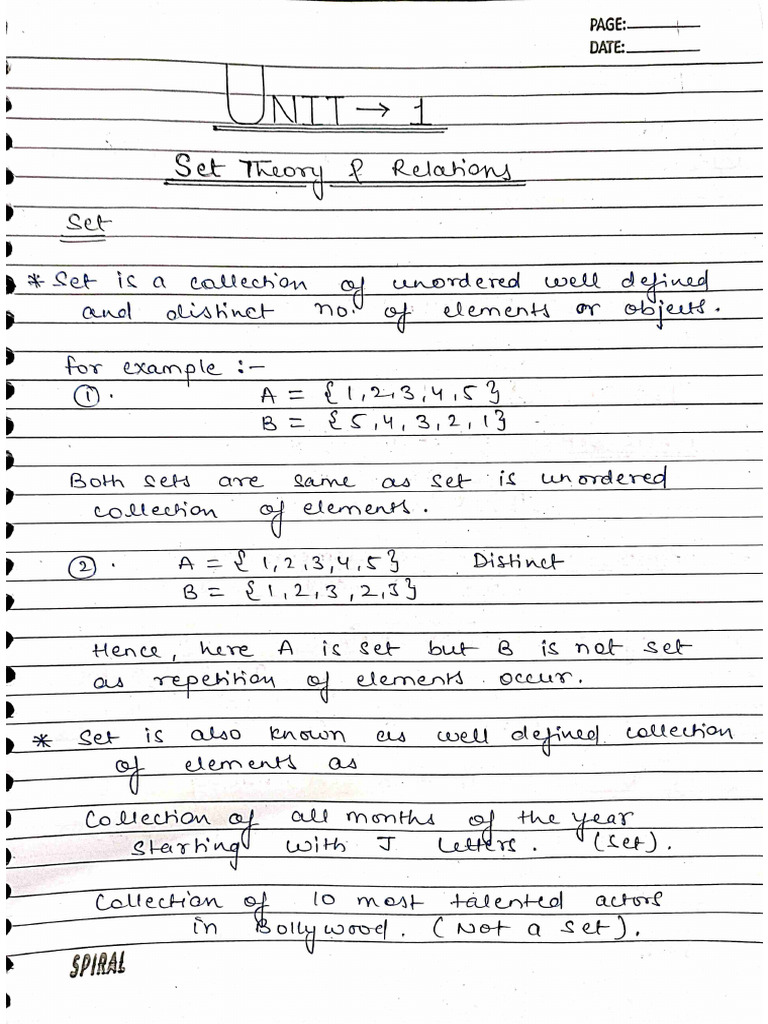 PAGE:
DATE:
UNIT → 1
Set Theory & Relations
Set
* Set is a collection of unordered well defined
and distinct no. of elements or objects.
for example :-
①. A = {1,2,3,4,5}
B = {5,4,3,2,1}
Both sets are same as set is unordered
collection of elements.
②. A = {1,2,3,4,5} Distinct
B = {1,2,3,2,3}
Hence, here A is set but B is not set
as repetition of elements occur.
* Set is also known as well defined collection
of elements as
Collection of all months of the year
starting with J letters. (Set).
Collection of 10 most talented actors
in Bollywood. (Not a set).
SPIRAL